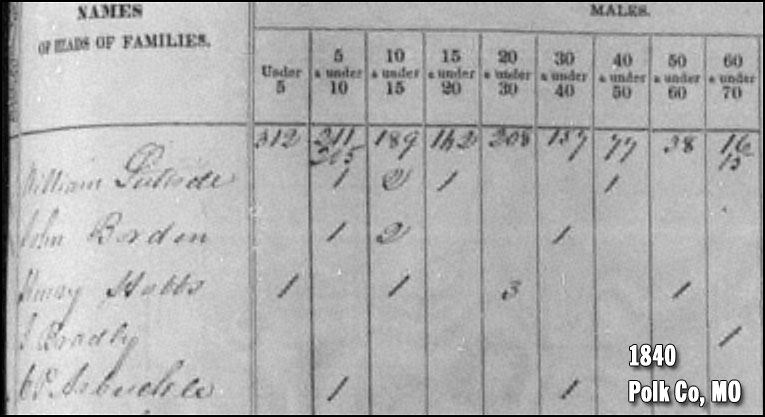 NAMES
OF HEADS OF FAMILIES.
MALES.
Under 5
5 & under 10
10 & under 15
15 & under 20
20 & under 30
30 & under 40
40 & under 50
50 & under 60
60 & under 70
312 211 189 142 208 137 77 38 16
215 15
William 1 2 1 1
John Borden 1 2 1
Henry Hobbs 1 1 3 1
J Bradly 1
P. Arbuckle 1 1
1840
Polk Co, MO